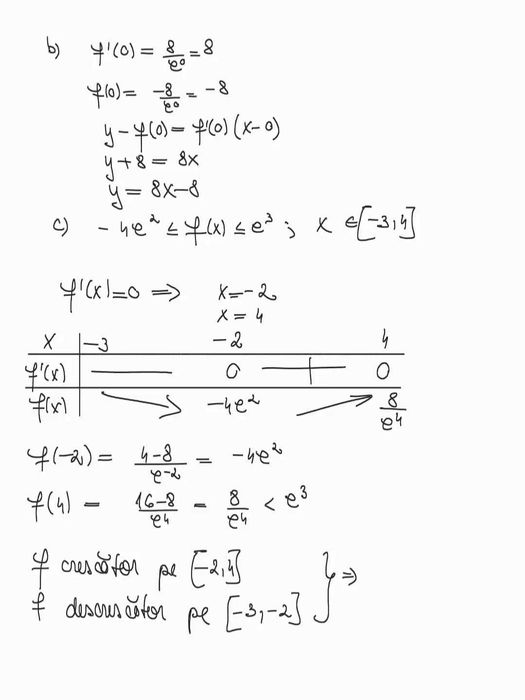 b) f'(0) = 8/e⁰ = 8
f(0) = -8/e⁰ = -8
y - f(0) = f'(0) (x-0)
y + 8 = 8x
y = 8x-8
c) - 4e² ≤ f(x) ≤ e³ ; x ∈ [-3,4]
f'(x)=0 => x=-2
x = 4
x | -3 -2 4
f'(x) | —— 0 —+— 0
f(x) | ↘ -4e² ↗ 8/e⁴
f(-2) = 4-8/e⁻² = -4e²
f(4) = 16-8/e⁴ = 8/e⁴ < e³
f crescător pe [-2,4] } =>
f descrescător pe [-3,-2]